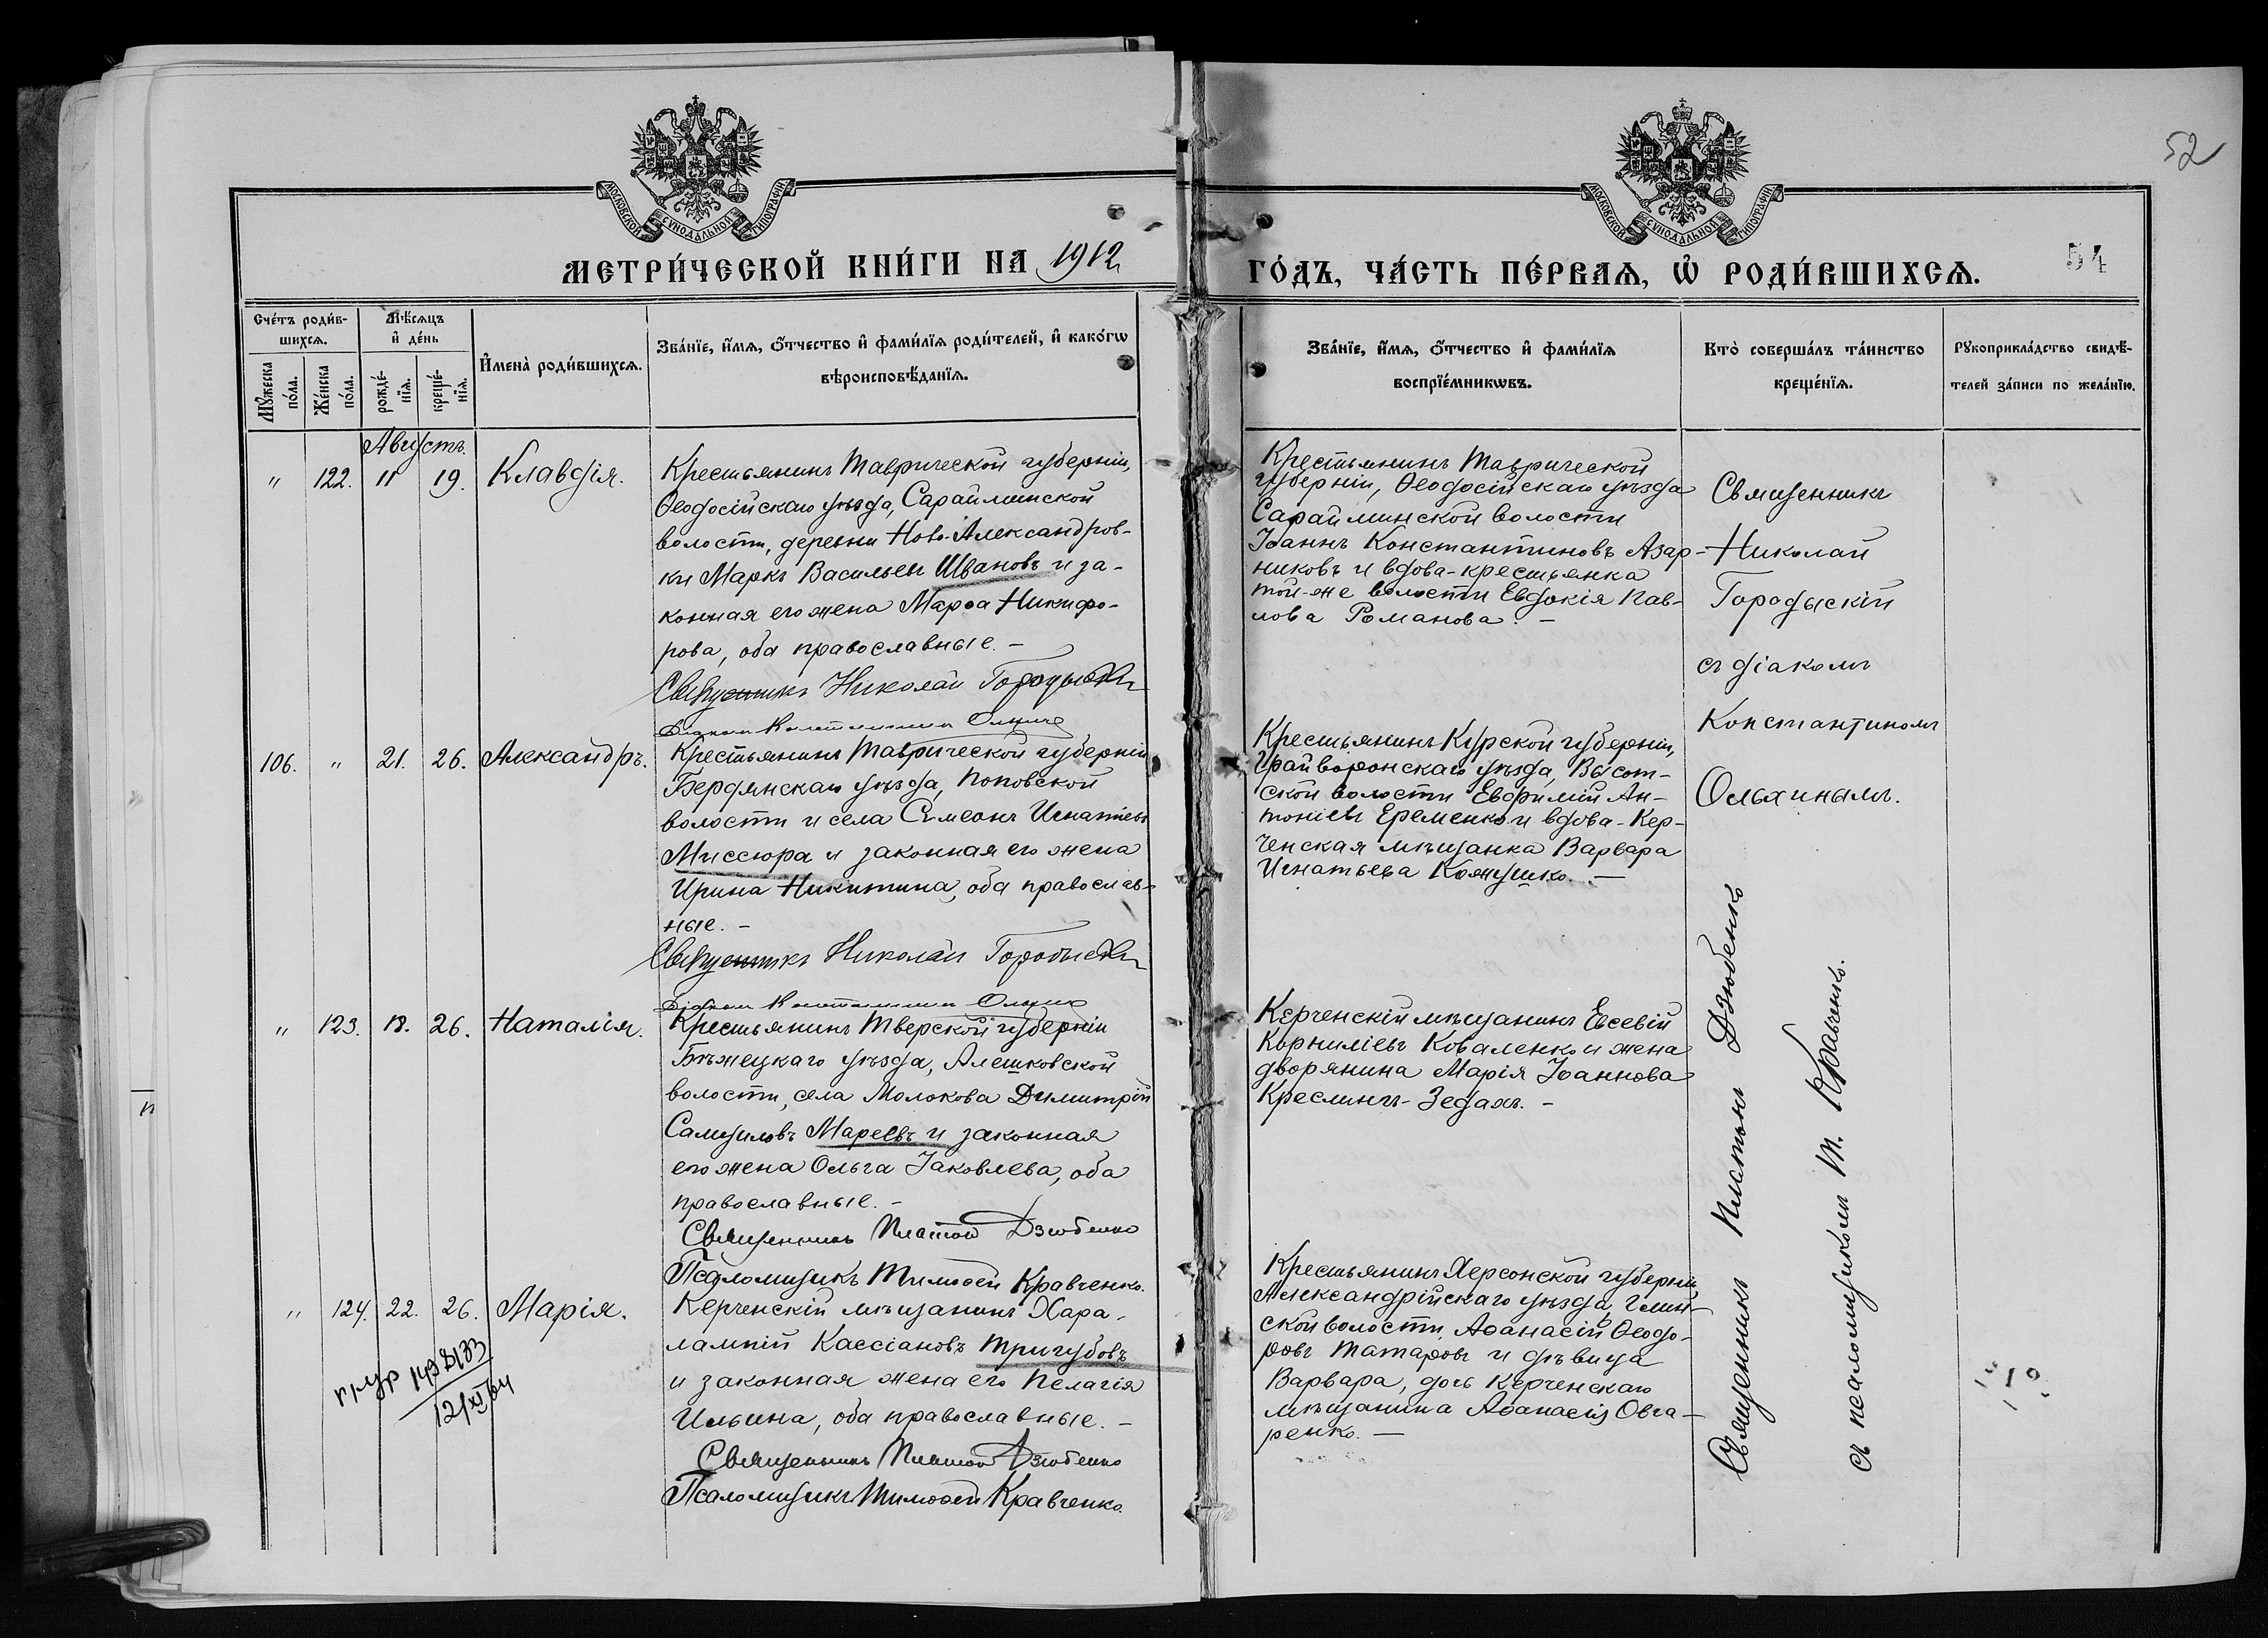 52
МОСКОВСКОЙ СУНОДАЛЬНОЙ ТИПОГРАФІИ
МОСКОВСКОЙ СУНОДАЛЬНОЙ ТИПОГРАФІИ
МЕТРИ́ЧЕСКОЙ КНИ́ГИ НА 1912
ГО́ДЪ, ЧА́СТЬ ПЕ́РВАѦ, Ѡ҆ РОДИ́ВШИХСѦ.
54
Сче́тъ роди́в-
шихсѧ.
Мꙋ́жеска
по́ла.
Же́нска
по́ла.
Мѣ́сѧцъ
и҆ де́нь
рожде́-
нїѧ.
креще́-
нїѧ.
И҆мена̀ роди́вшихсѧ.
Зва́нїе, и҆́мѧ, ѻ҆́тчество и҆ фами́лїѧ роди́телей, и҆ како́гѡ
вѣроисповѣ́данїѧ.
Зва́нїе, и҆́мѧ, ѻ҆́тчество и҆ фами́лїѧ
воспрїе́мникѡвъ.
Кто̀ соверша́лъ та́инство
креще́нїѧ.
Рꙋкоприкла́дство свидѣ́-
телей за́писи по жела́нїю.
Августъ.
" 122. 11 19. Клавдія.
Крестьянинъ Таврической губерніи,
Ѳеодосійскаго уѣзда, Сарайминской
волости, деревни Ново-Александров-
ки Маркъ Васильевъ Ивановъ и за-
конная его жена Марѳа Никифо-
рова, оба православные. -
Священникъ Николай Городыскій
Діаконъ Константинъ
Крестьянинъ Таврической
губерніи, Ѳеодосійскаго уѣзда
Сарайминской волости
Іоаннъ Константиновъ Азар-
никовъ и вдова-крестьянка
той-же волости Евдокія Пав-
лова Романова. -
Священникъ
Николай
Городыскій
съ діакономъ
Константиномъ
Ольхинымъ.
106. " 21. 26. Александръ.
Крестьянинъ Таврической губерніи
Бердянскаго уѣзда, Поповской
волости и села Сѵмеонъ Игнатіевъ
Миссюра и законная его жена
Ирина Никитина, оба православ-
ные. -
Священникъ Николай Городыскій
Діаконъ Константинъ
Крестьянинъ Курской губерніи,
Грайворонскаго уѣзда, Высот-
ской волости Евфимій Ан-
тоніевъ Еременко и вдова-Кер-
ченская мѣщанка Варвара
Игнатьева Кожушко. -
" 123. 18. 26. Наталія.
Крестьянинъ Тверской губерніи
Бѣжецкаго уѣзда, Алешковской
волости, села Молокова Димитрій
Самуиловъ Маревъ и законная
его жена Ольга Іаковлева, оба
православные. -
Священникъ Платонъ Дзюбенко
Псаломщикъ Тимоѳей Кравченко.
Керченскій мѣщанинъ Евсевій
Корниліевъ Коваленко и жена
дворянина Марія Іоаннова
Креслингъ-Зедахъ. -
" 124. 22. 26. Марія.
Керченскій мѣщанинъ Хара-
лампій Кассіановъ Тригубовъ
и законная жена его Пелагія
Ильина, оба православные. -
Священникъ Платонъ Дзюбенко
Псаломщикъ Тимоѳей Кравченко.
Крестьянинъ Херсонской губерніи,
Александрійскаго уѣзда, Глин-
ской волости, Аѳанасій Ѳеодо-
ровъ Татаровъ и дѣвица
Варвара, дочь Керченскаго
мѣщанина Аѳанасія Овча-
ренко. -
Священникъ Платонъ Дзюбенко
съ псаломщикомъ Т. Кравченко.